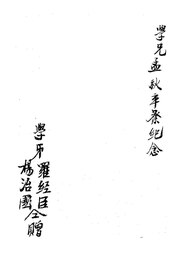 學兄孟秋卒業紀念
學弟羅经臣
楊治國仝贈